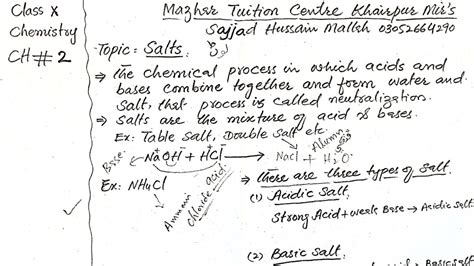 Class X
Chemistry
CH # 2
Mazhar Tuition Centre Khairpur Mir's
Sajjad Hussain Mallah 03052664290
Topic: Salts:
⇒ the chemical process in which acids and
bases combine together and form water and
Salt, that process is called neutralization.
⇒ Salts are the mixture of acid & bases.
Ex: Table Salt, Double Salt etc
Alumn
Base NaOH + HCl → NaCl + H₂O
acid
Ex: NH4Cl
Ammonium
chloride
⇒ there are three types of Salt.
(1) Acidic Salt,
Strong Acid + weak Base → Acidic Salt
(2) Basic Salt.
Basic Salt